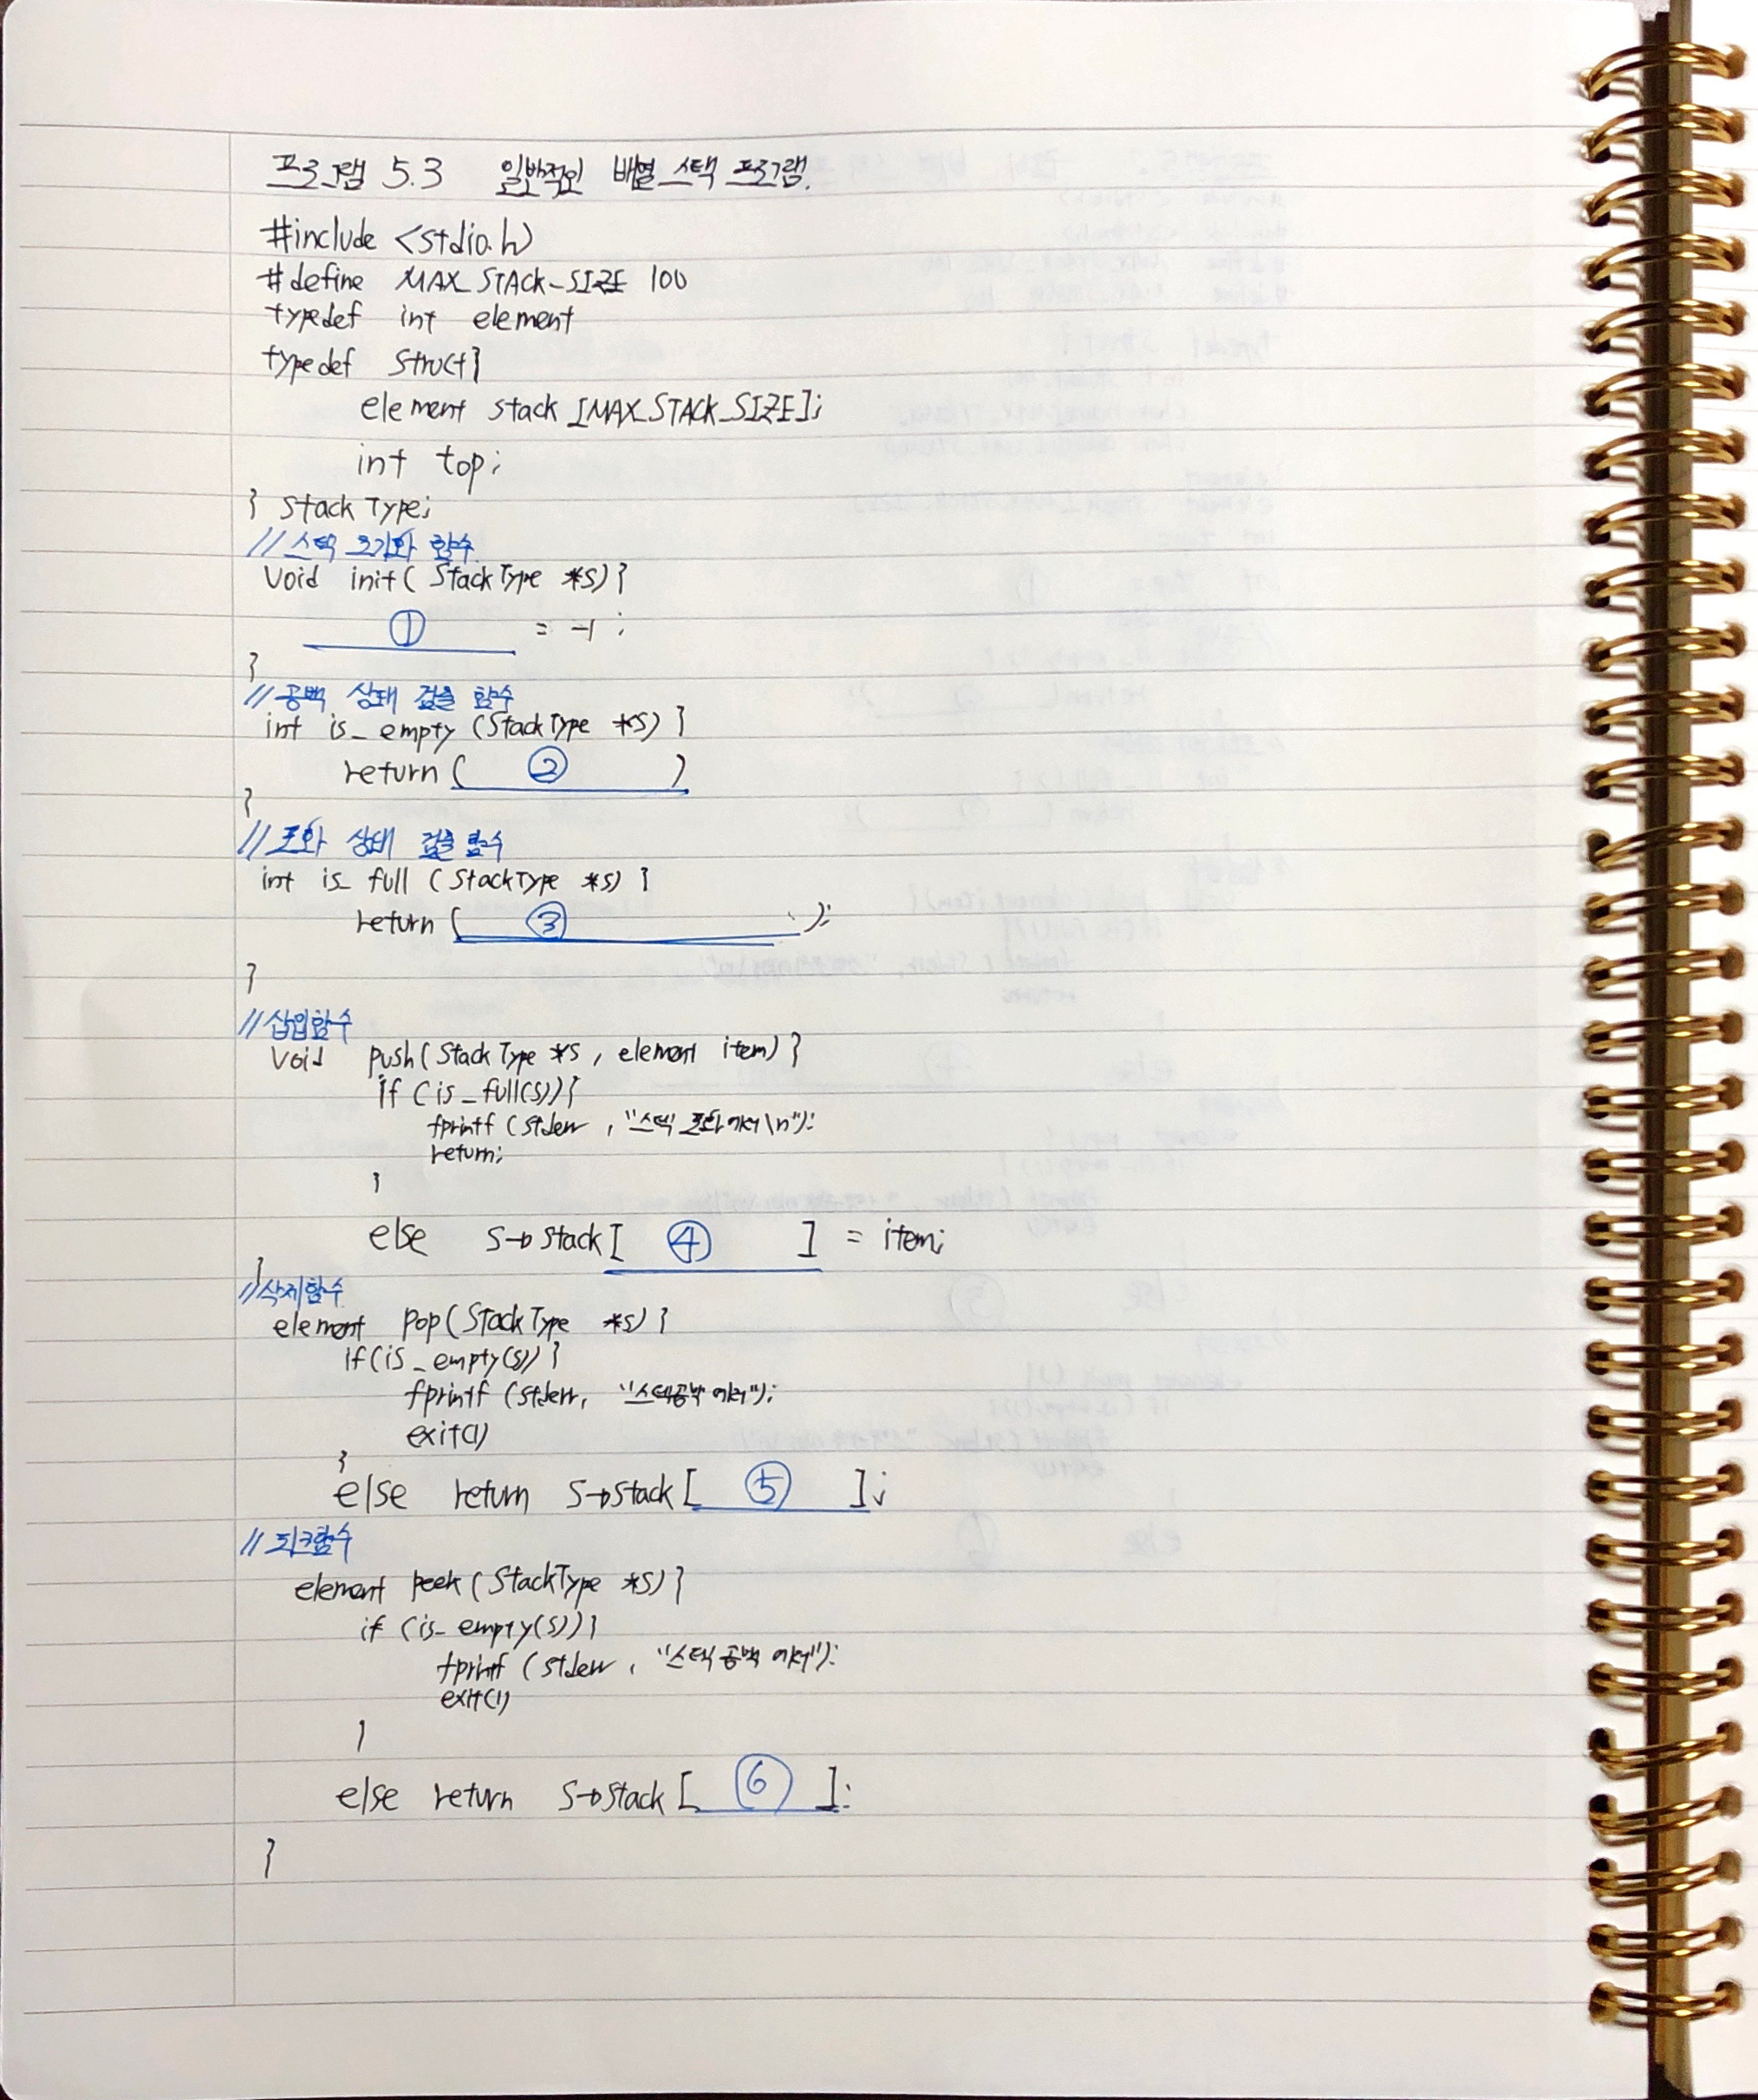 프로그램 5.3 일반적인 배열 스택 프로그램.
#include <stdio.h>
#define MAX_STACK_SIZE 100
typedef int element
typedef struct{
element stack [MAX_STACK_SIZE];
int top;
} StackType;
//스택 초기화 함수
void init( StackType *s){
① = -1 ;
}
//공백 상태 검출 함수
int is_empty (StackType *s) {
return ( ② )
}
//포화 상태 검출 함수
int is_full (StackType *s) {
return ( ③ );
}
//삽입함수
void push( StackType *s , element item) {
if (is_full(s)){
fprintf (stderr , "스택 포화 에러\n");
return;
}
else s→stack[ ④ ] = item;
}
//삭제함수
element pop(StackType *s) {
if(is_empty(s)) {
fprintf (stderr, "스택공백 에러");
exit(1)
}
else return s→stack[ ⑤ ];
//피크함수
element peek (StackType *s) {
if (is_empty(s)){
fprintf (stderr , "스택 공백 에러");
exit(1)
}
else return s→stack[ ⑥ ];
}